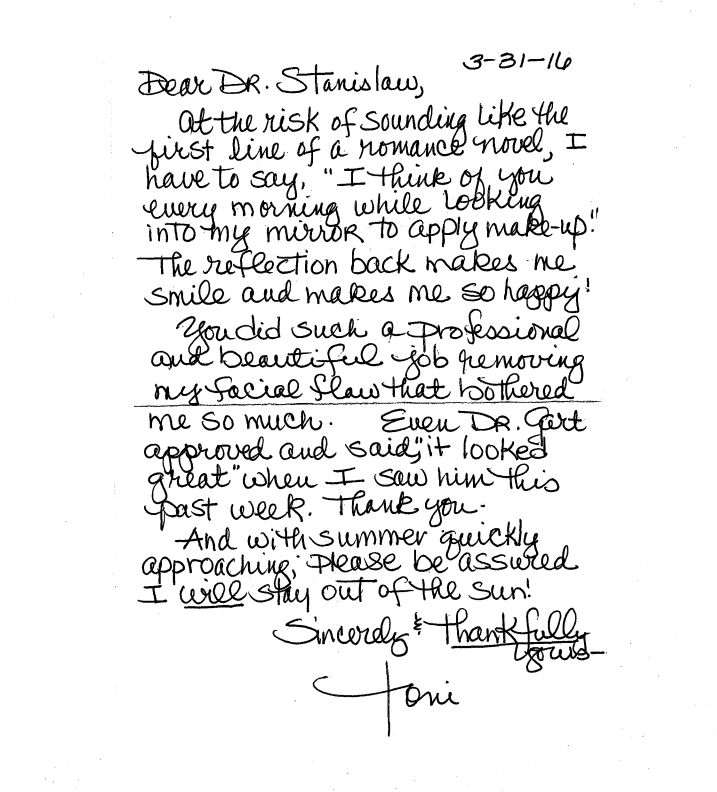 3-31-16
Dear DR. Stanislaw,
At the risk of sounding like the
first line of a romance novel, I
have to say, "I think of you
every morning while looking
into my mirror to apply make-up."
The reflection back makes me
smile and makes me so happy!
You did such a professional
and beautiful job removing
my facial flaw that bothered
me so much. Even DR. Gart
approved and said, "it looked
great" when I saw him this
past week. Thank you.
And with summer quickly
approaching, please be assured
I will stay out of the sun!
Sincerely & thankfully
yours-
Toni